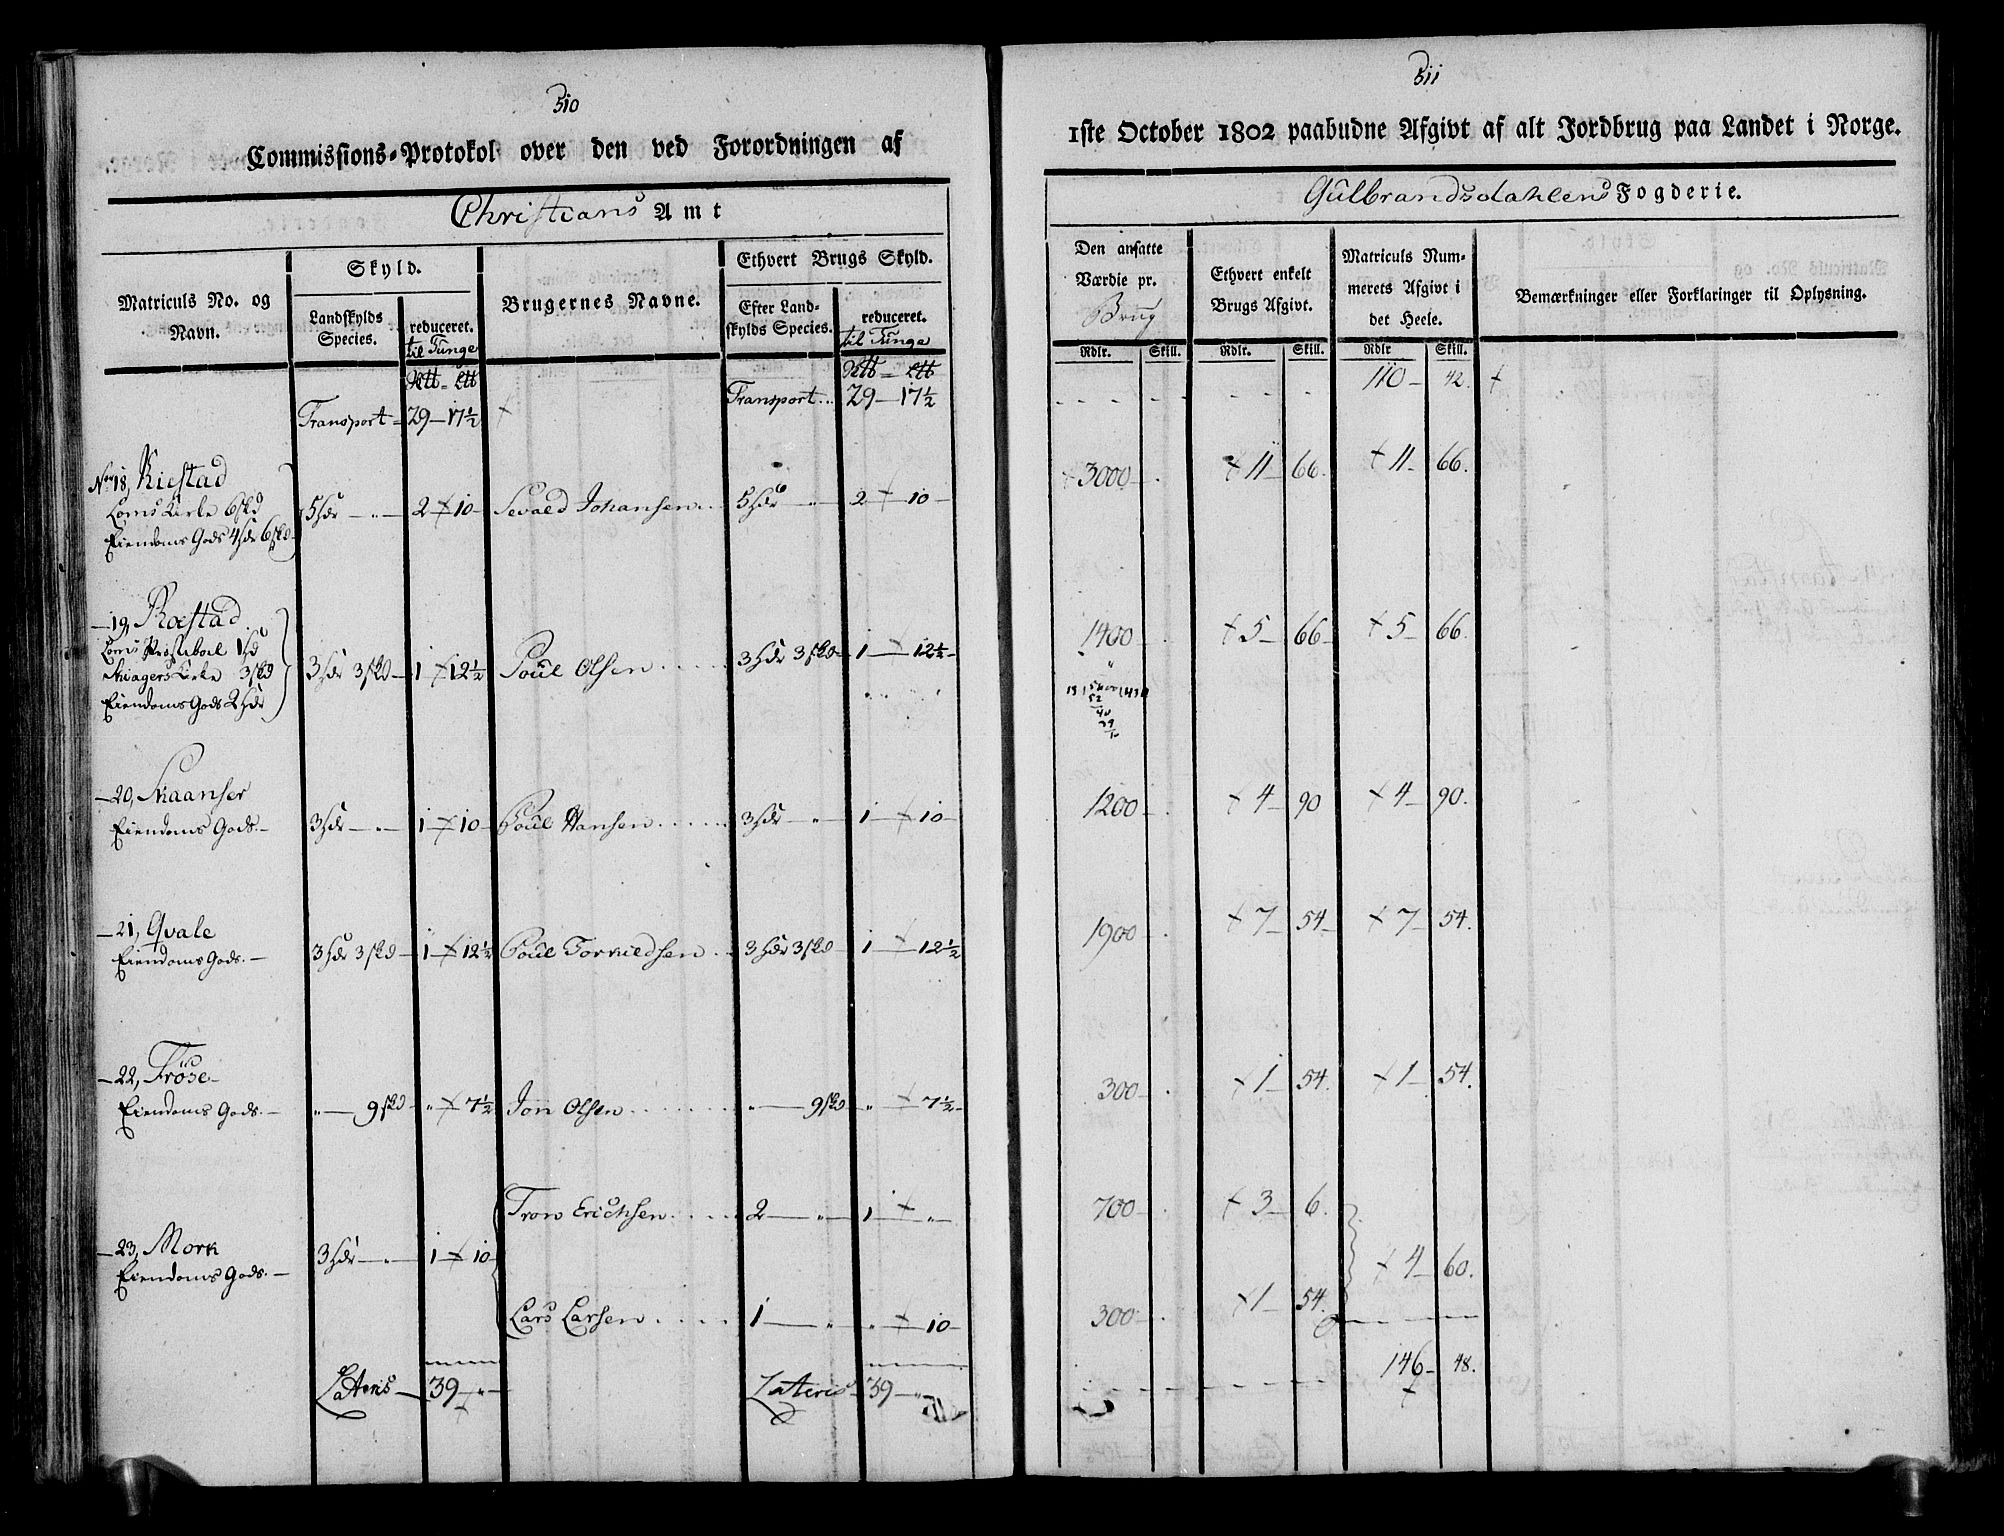 510
Commissions-Protokol over den ved Forordningen af
Christians Amt
Matriculs No. og Navn.
Skyld.
Landskylds Species.
reduceret. til Tunge
Brugernes Navne.
Ethvert Brugs Skyld.
Efter Landskylds Species.
reduceret. til Tunge
Transport 29 — 17½
Transport 29 — 17½
No 18, Kiestad
Loms Kirke 6 skd
Eiendoms Gods 4 hdr 6 skd
5 hdr — „ — 2 — 10
Sevald Johansen
5 hdr — „ — 2 — 10
19, Roestad
Loms Præstebol 1 hd
Skiagers Kirke 3 skd
Eiendoms Gods 2 hdr
3 hdr 3 skd — 1 — 12½
Poul Olsen
3 hdr 3 skd — 1 — 12½
20, Skaanser
Eiendoms Gods
3 hdr — „ — 1 — 10
Poul Hansen
3 hdr — „ — 1 — 10
21, Qvale
Eiendoms Gods
3 hdr 3 skd — 1 — 12½
Poul Torkildsen
3 hdr 3 skd — 1 — 12½
22, Fröse
Eiendoms Gods
„ — 9 skd — „ — 7½
Jon Olsen
„ — 9 skd — „ — 7½
23, Mork
Eiendoms Gods
3 hdr — „ — 1 — 10
Tron Erichsen
2 — „ — 1 — „
Lars Larsen
1 — „ — „ — 10
Lateris — 39 — „
Lateris 39 — „
511
1ste October 1802 paabudne Afgivt af alt Jordbrug paa Landet i Norge.
Gulbrandsdahlens Fogderie.
Den ansatte Værdie pr. Brug
Ethvert enkelt Brugs Afgivt.
Matriculs Nummerets Afgivt i det Heele.
Bemærkninger eller Forklaringer til Oplysning.
Rdlr. Skill. Rdlr. Skill. Rdlr Skill.
110 — 42.
3000 — 11 — 66. 11 — 66.
1400 — 5 — 66 5 — 66.
1200 — 4 — 90 4 — 90.
1900 — 7 — 54 7 — 54.
300 — 1 — 54. 1 — 54.
700 — 3 — 6.
4 — 60.
300 — 1 — 54.
146 — 48.